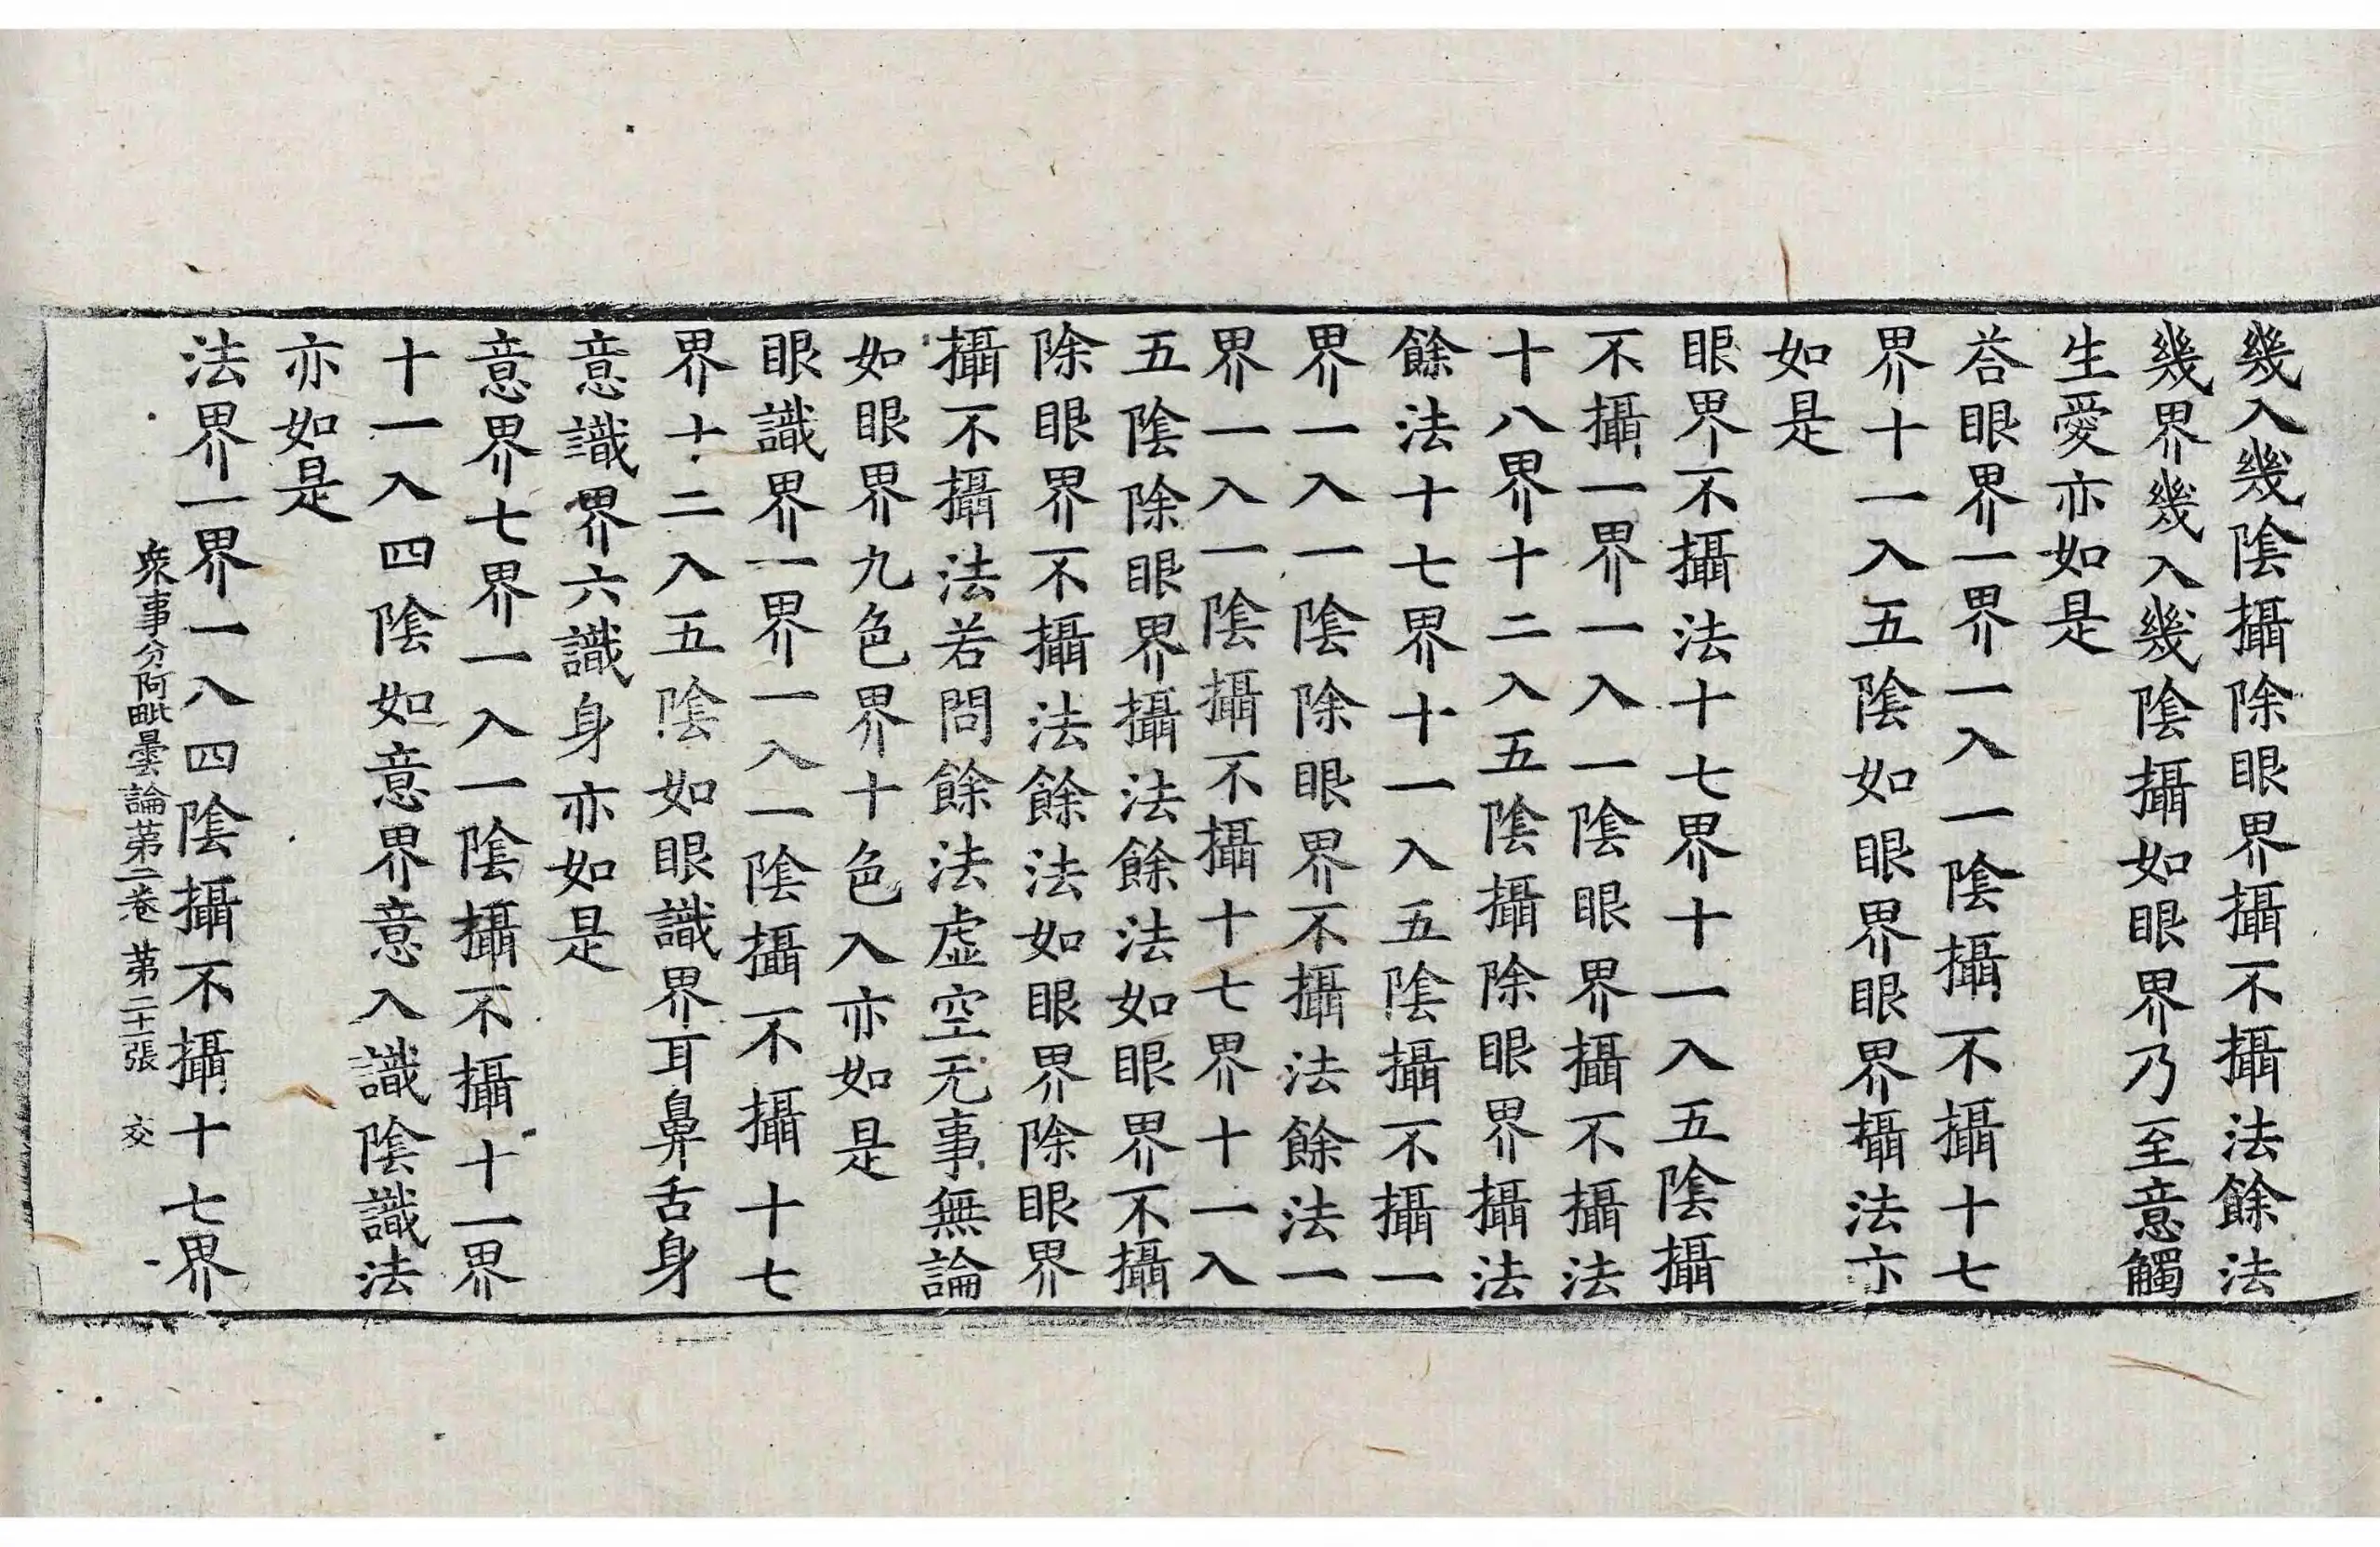 幾入幾陰攝除眼界攝不攝法餘法
幾界幾入幾陰攝如眼界乃至意觸
生愛亦如是
荅眼界一界一入一陰攝不攝十七
界十一入五陰如眼界眼界攝法亦
如是
眼界不攝法十七界十一入五陰攝
不攝一界一入一陰眼界攝不攝法
十八界十二入五陰攝除眼界攝法
餘法十七界十一入五陰攝不攝一
界一入一陰除眼界不攝法餘法一
界一入一陰攝不攝十七界十一入
五陰除眼界攝法餘法如眼界不攝
除眼界不攝法餘法如眼界除眼界
攝不攝法若問餘法虛空无事無論
如眼界九色界十色入亦如是
眼識界一界一入一陰攝不攝十七
界十二入五陰如眼識界耳鼻舌身
意識界六識身亦如是
意界七界一入一陰攝不攝十一界
十一入四陰如意界意入識陰識法
亦如是
法界一界一八四陰攝不攝十七界
衆事分阿毗曇論第二卷 第二十一張 交